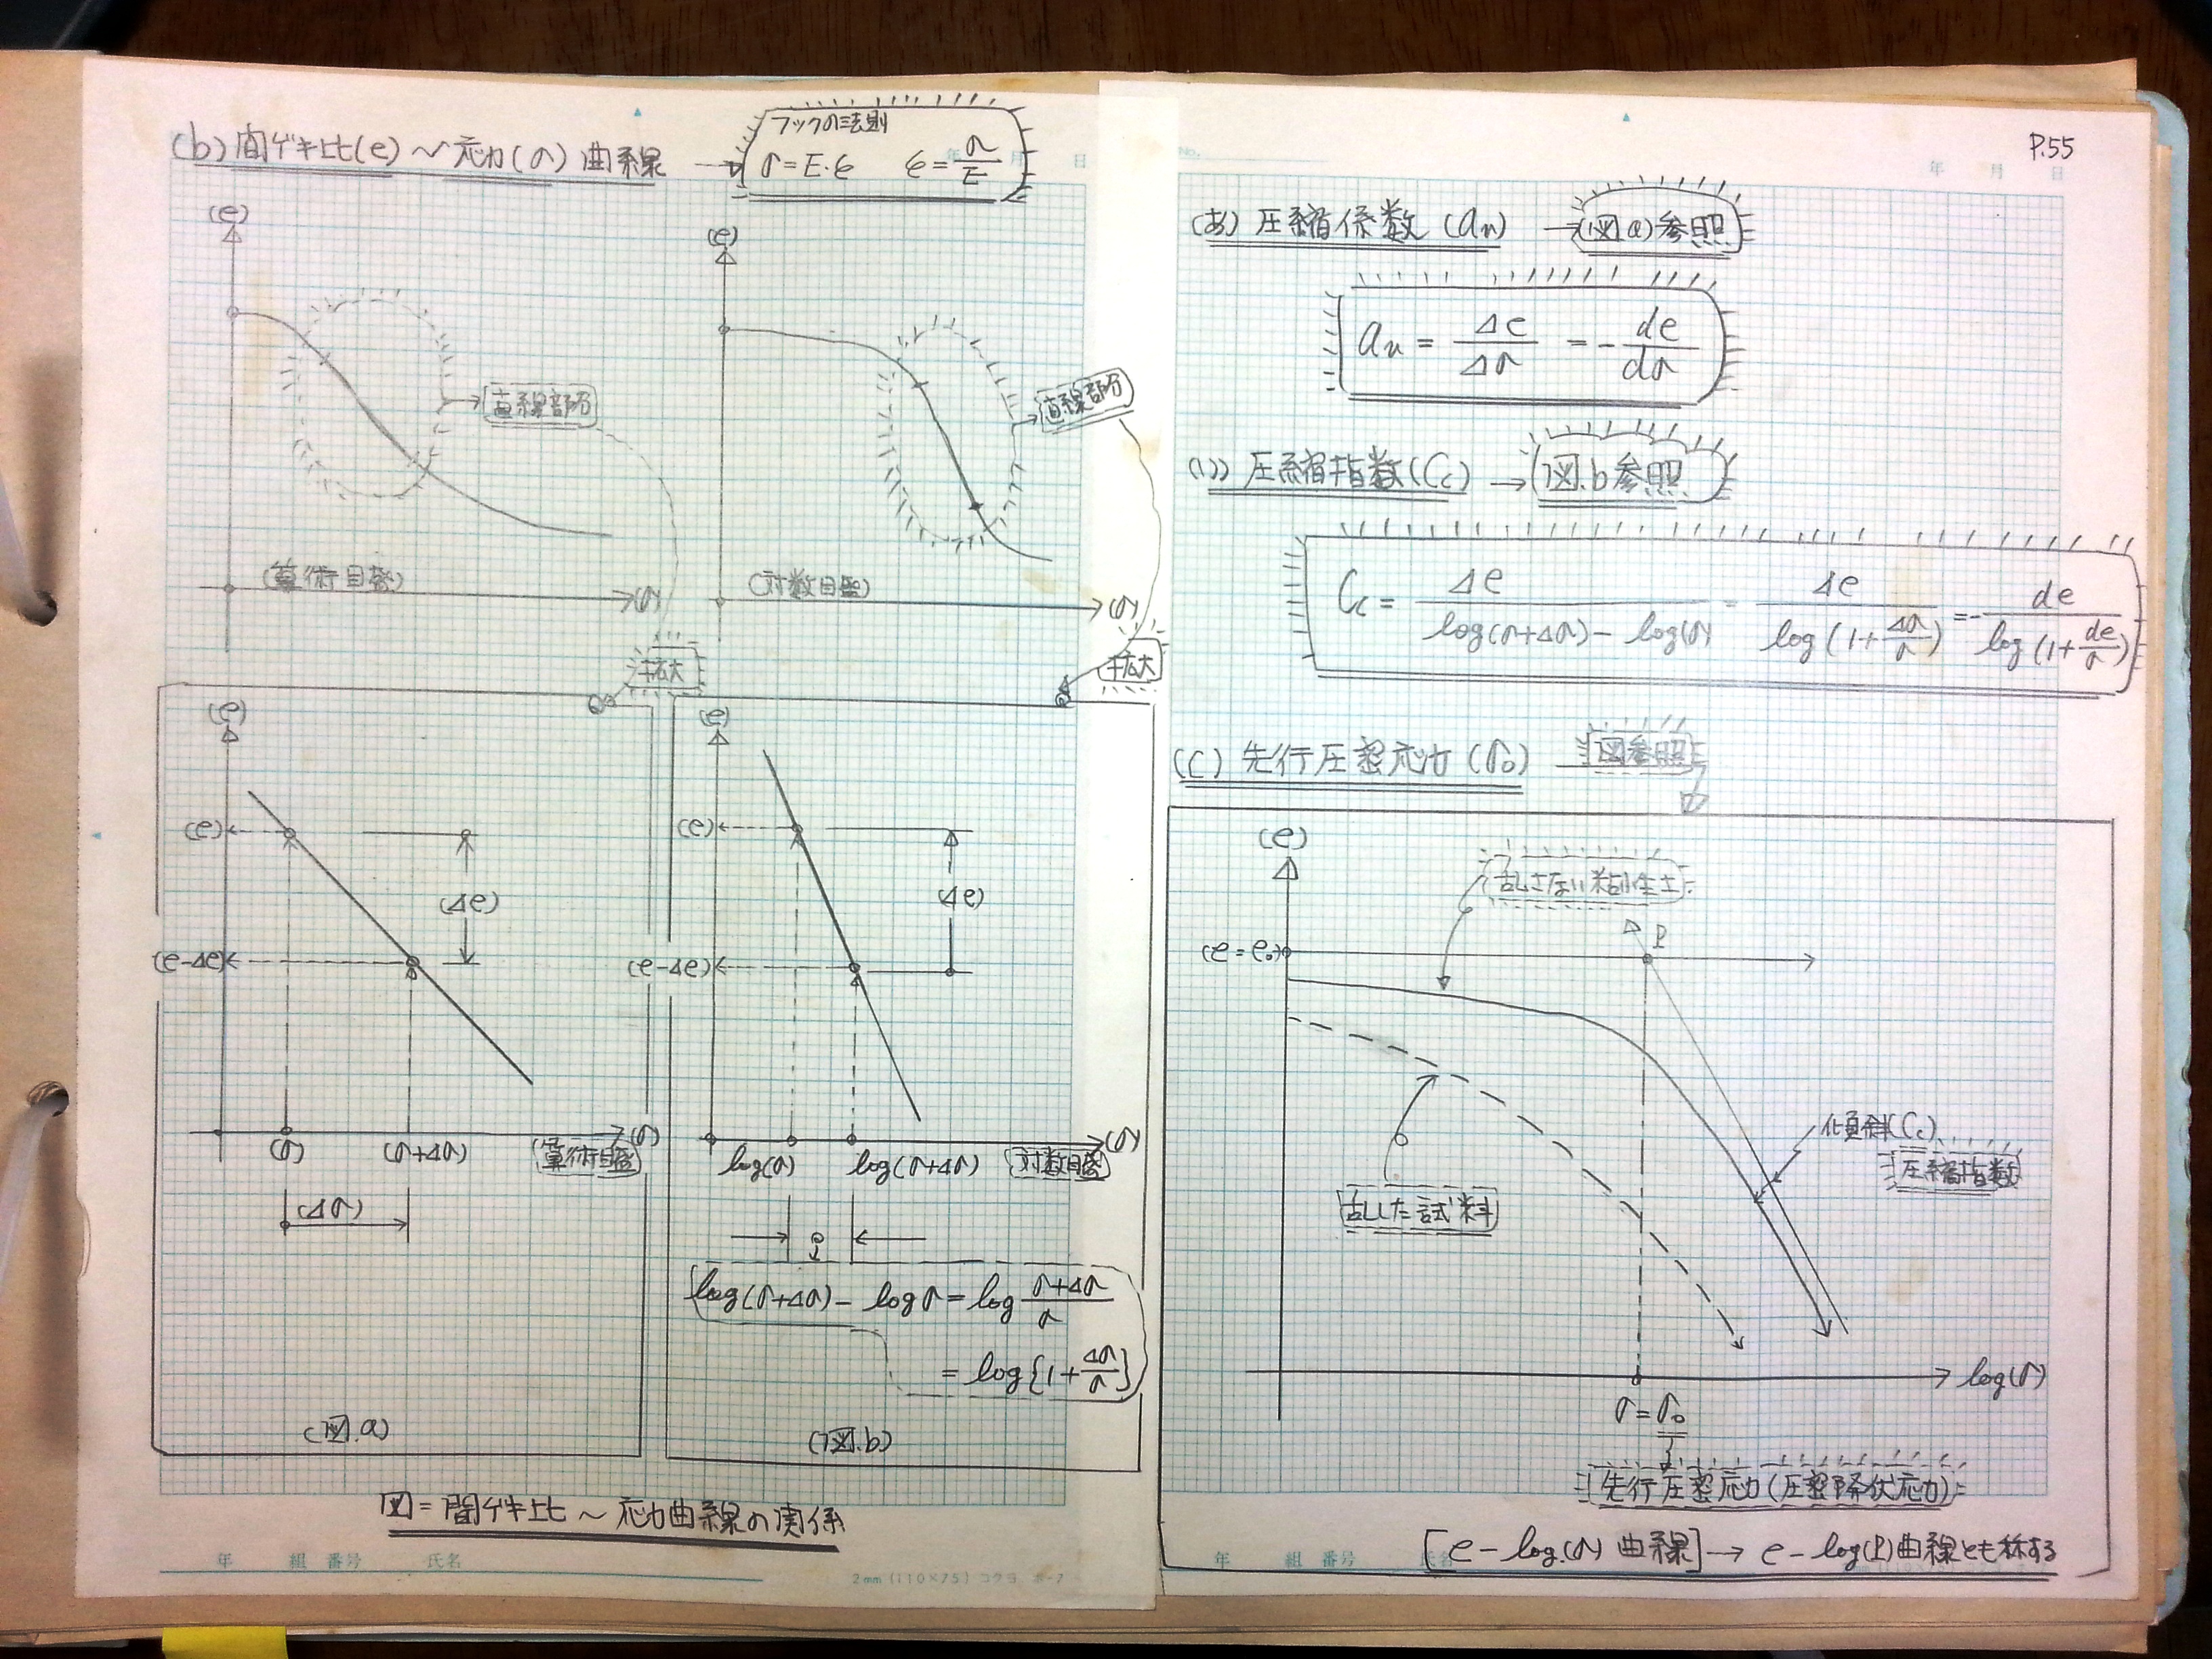 (b) 間ゲキ比(e) ～ 応力(σ) 曲線
フックの法則
σ = E・ε  ε = σ/E
(e)
直線部分
(算術目盛)
(σ)
拡大
(e)
直線部分
(対数目盛)
(σ)
拡大
(e)
(e)
(e-Δe)
(Δe)
(σ)
(σ+Δσ)
(算術目盛)
(σ)
(Δσ)
(図.a)
(e)
(e)
(e-Δe)
(Δe)
log(σ)
log(σ+Δσ)
(対数目盛)
(σ)
log(σ+Δσ) - logσ = log (σ+Δσ)/σ
= log{1+Δσ/σ}
(図.b)
図=間ゲキ比 ～ 応力曲線の関係
年 組 番号 氏名
2mm (110×75) コクヨ ホ-7
P.55
No.
年 月 日
(あ) 圧縮係数 (av) → (図a)参照
av = Δe/Δσ = -de/dσ
(い) 圧縮指数(Cc) → 図.b参照
Cc = Δe/(log(σ+Δσ) - log(σ)) = Δe/log(1+Δσ/σ) = -de/log(1+de/σ)
(C) 先行圧密応力 (σo) 図参照
(e)
乱さない粘性土
P
(e = eo)
傾斜(Cc)
圧縮指数
乱した試料
log(σ)
σ = σo
先行圧密応力(圧密降伏応力)
[e - log.(σ) 曲線] → e - log(P)曲線とも称する
年 組 番号 氏名